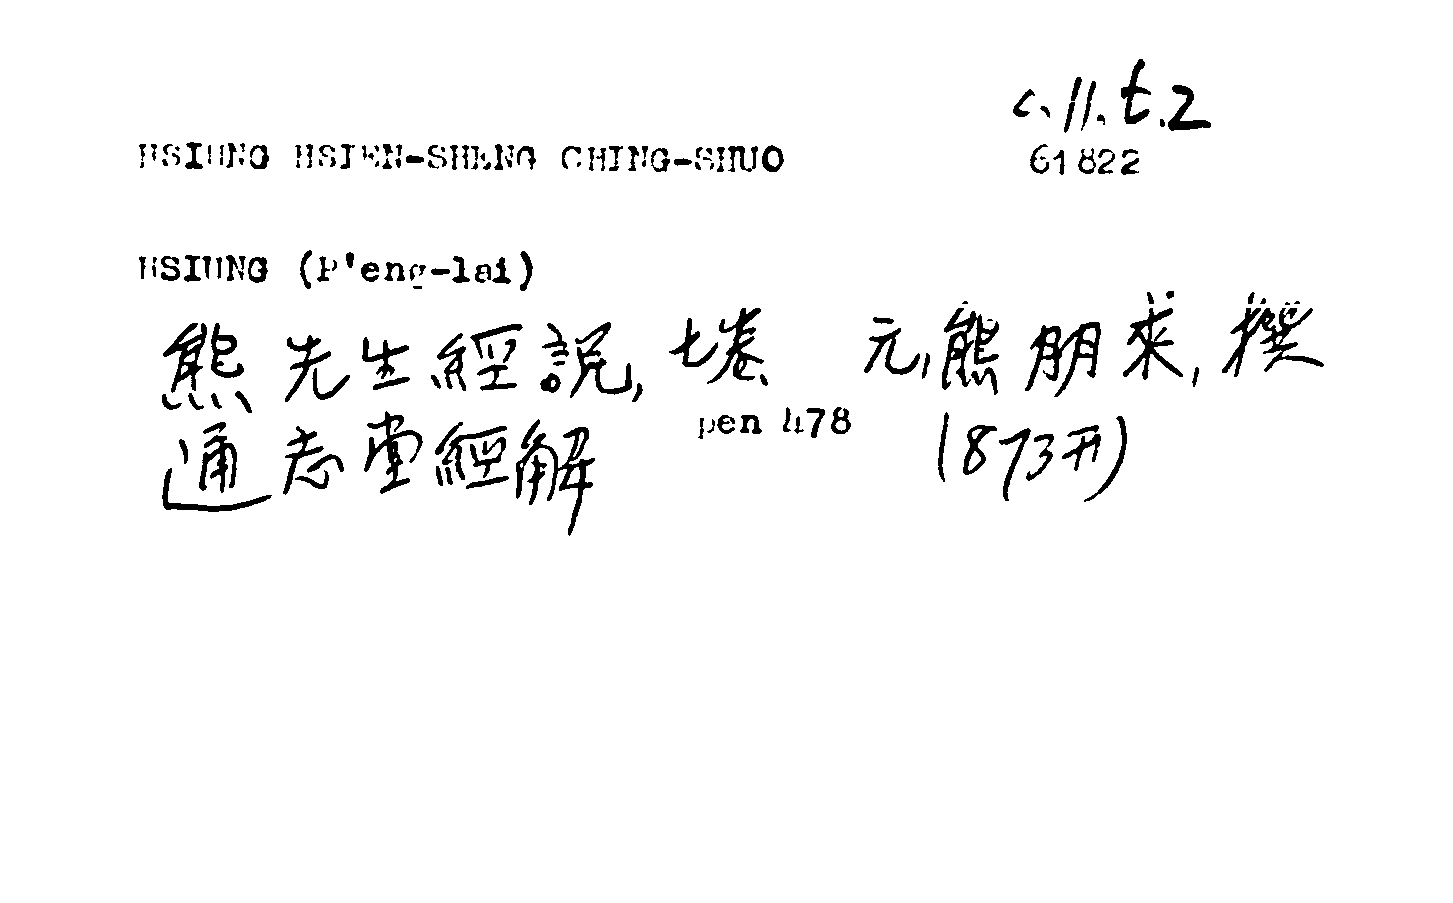 c.11.t.2
HSIUNG HSIEN-SHENG CHING-SHUO 61822
HSIUNG (P'eng-lai)
熊先生經說, 七卷 元, 熊朋來, 撰
通志堂經解 pen 478 (873开)